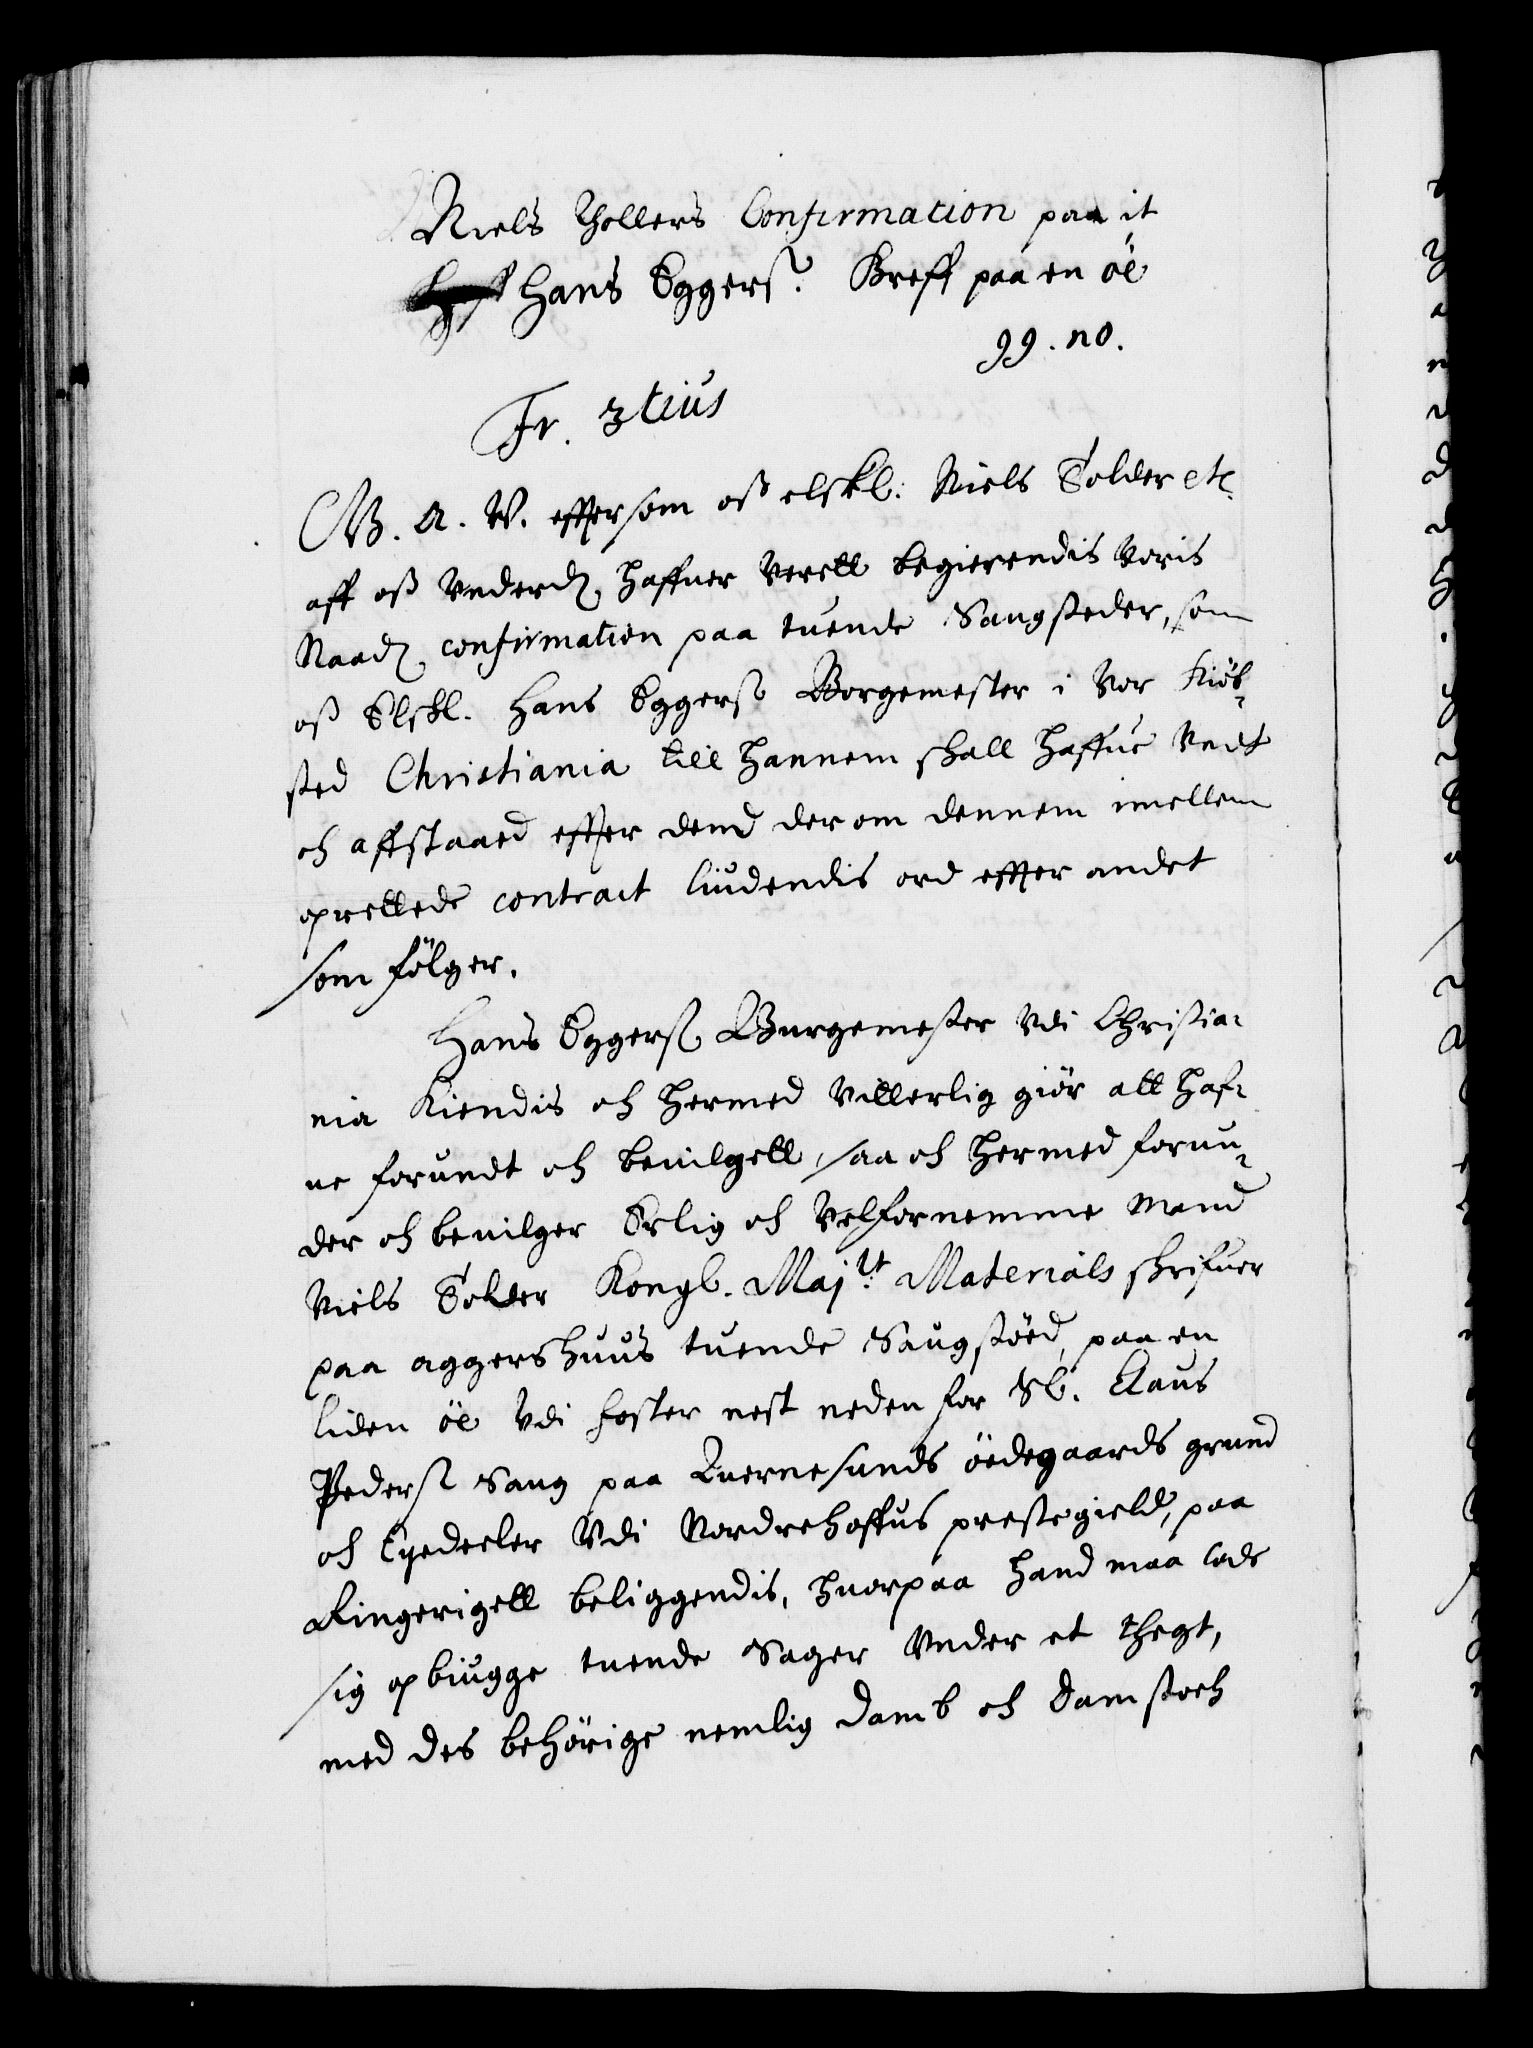 Niels Thollers Confirmation paa it
Hans Eggers? Breff paa en öe
99. no.
Fr. 3tius
W. A. V. effter som oß elskl: Niels Tolder etc.
aff oß Underd. haffuer Verett begierendis Voris
Naad. confirmation paa tuende Saugsteder, som
oß Elskl. Hans Eggerss Borgemester i Vor Kiöb-
sted Christiania till hannem skall haffue Undt
och affstaaed effter dend der om dennem imellem
oprettede contract liudendis ord effter andet
som fölger.
Hans Eggerss Burgemester Vdi Christia-
nia Kiendis och hermed Vitterlig giör att haf-
ue forundt och beuilgett, saa och hermed forun-
der och beuilger Erlig och Velfornemme Mand
Niels Tolder Kongl. Maj.tt Materials skrifuer
paa aggershuus tuende Saugstöed, paa en
liden öe Vdi foster nest neden for Sl. Claus
Pederss Saug paa Quernesunds ödegaards grund
och Eyedeeler Vdi Nordrehoffus prestegield, paa
Ringerigett beliggendis, huorpaa hand maa lade
sig opbiugge tuende Sager Under et thegt,
med des behörige nemlig Damb och Damstoch